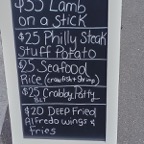 $35 Lamb
on a stick
$25 Philly Steak
Stuff Potato
$25 Seafood
Rice (crawfish + Shrimp)
$25 Crabby Patty
SLT
$20 Deep Fried
Alfredo wings &
fries